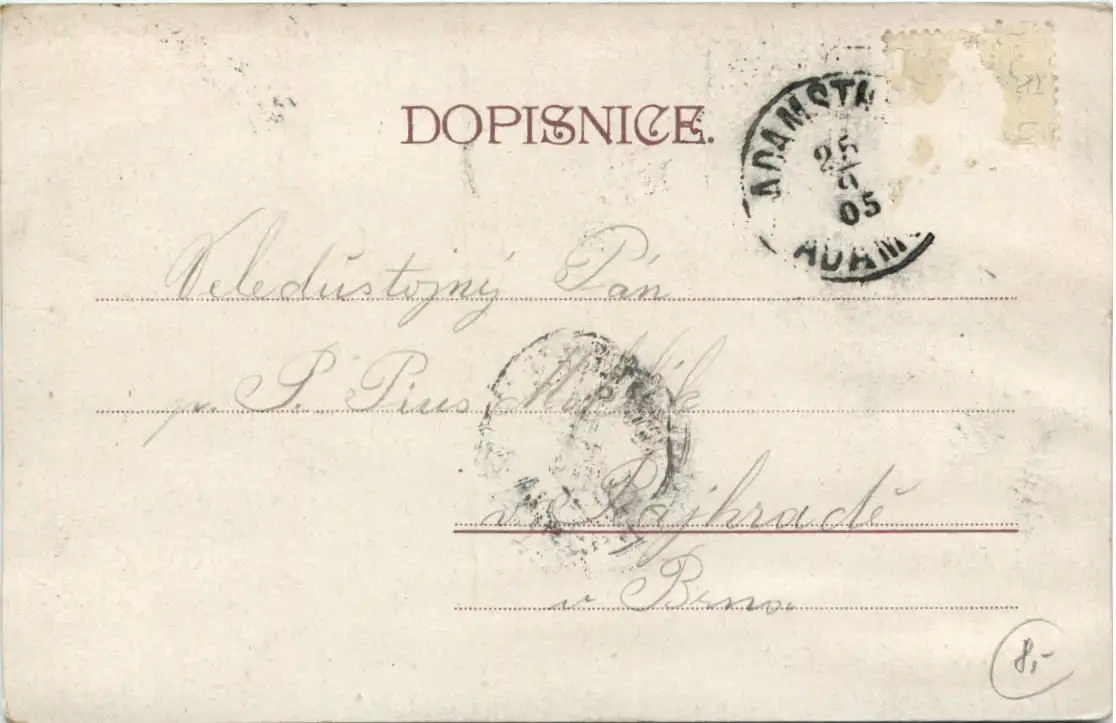 DOPISNICE.
ADAMSTH
25
9
05
ADAM
Veledůstojný Pán
p. P. Pius
v Rajhradě
u Brna
8,-